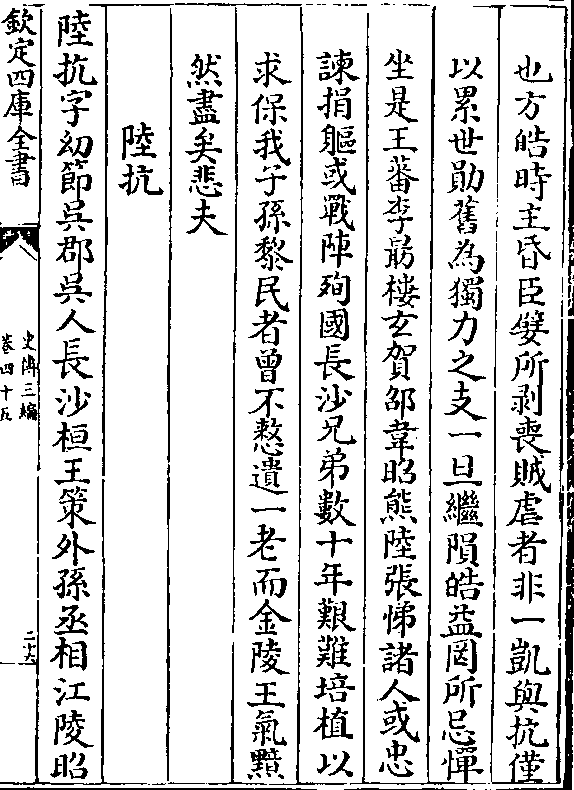 也方皓時主昏臣嬖所剥喪賊虐者非一凱與抗僅
以累世勛舊為獨力之支一旦繼隕皓益罔所忌憚
坐是王蕃李勗樓玄賀邵韋昭熊陸張悌諸人或忠
諫捐軀或戰陣殉國長沙兄弟數十年艱難培植以
求保我子孫黎民者曾不憗遺一老而金陵王氣黯
然盡矣悲夫
陸抗
陸抗字幼節吳郡吳人長沙桓王策外孫丞相江陵昭
欽定四庫全書
史傳三編
卷四十五
二十六